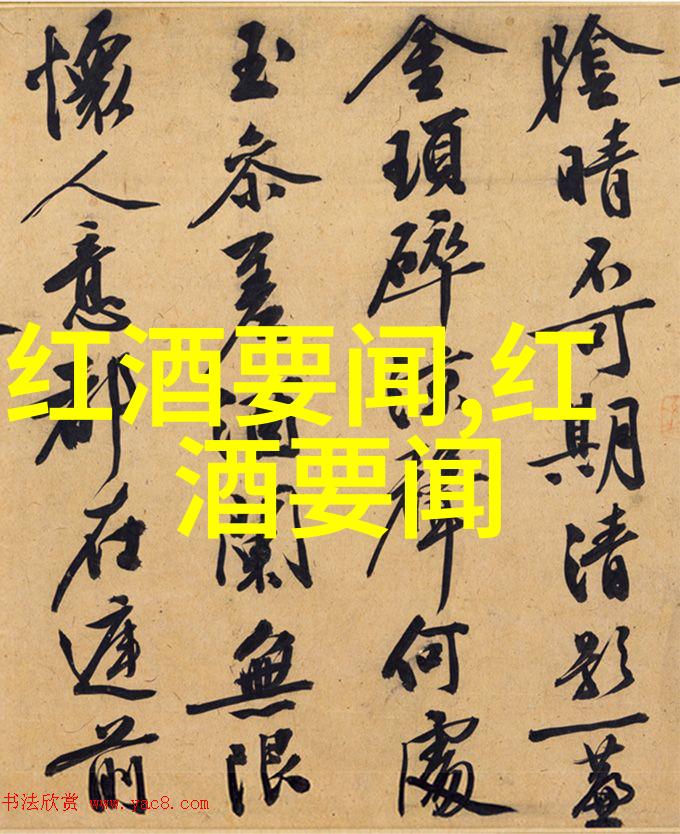 陰晴不可期清影一
金瑣碎涼聲何處
玉參差酒闌無限
懷人意都在前
红酒要闻,红
酒要闻
书法欣赏 www.yac8.com